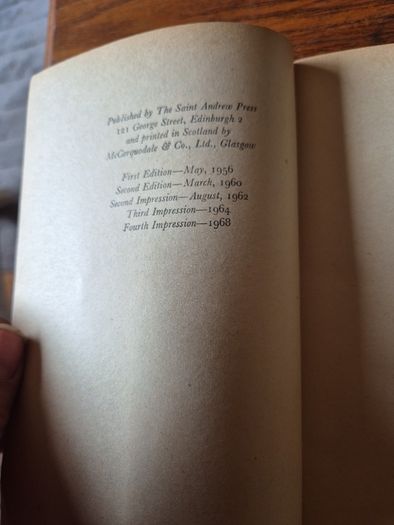 Published by The Saint Andrew Press
121 George Street, Edinburgh 2
and printed in Scotland by
McCorquodale & Co., Ltd., Glasgow
First Edition—May, 1956
Second Edition—March, 1960
Second Impression—August, 1962
Third Impression—1964
Fourth Impression—1968